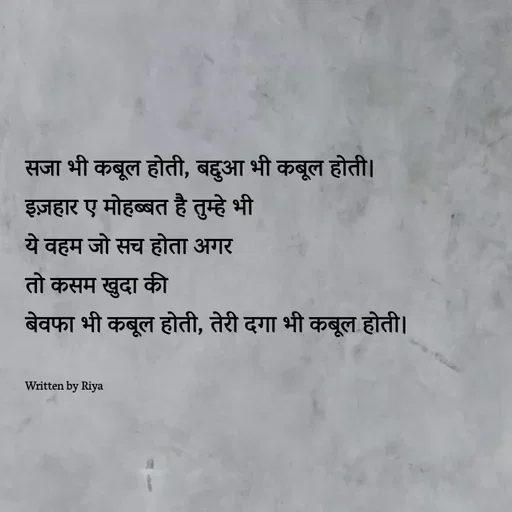 सजा भी कबूल होती, बद्दुआ भी कबूल होती।
इज़हार ए मोहब्बत है तुम्हे भी
ये वहम जो सच होता अगर
तो कसम खुदा की
बेवफा भी कबूल होती, तेरी दगा भी कबूल होती।
Written by Riya